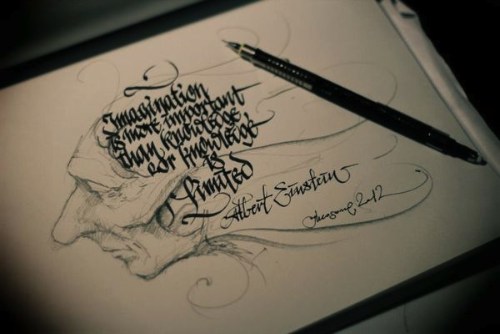 Imagination
is more important
than knowledge
for knowledge
is
limited
Albert Einstein
2012